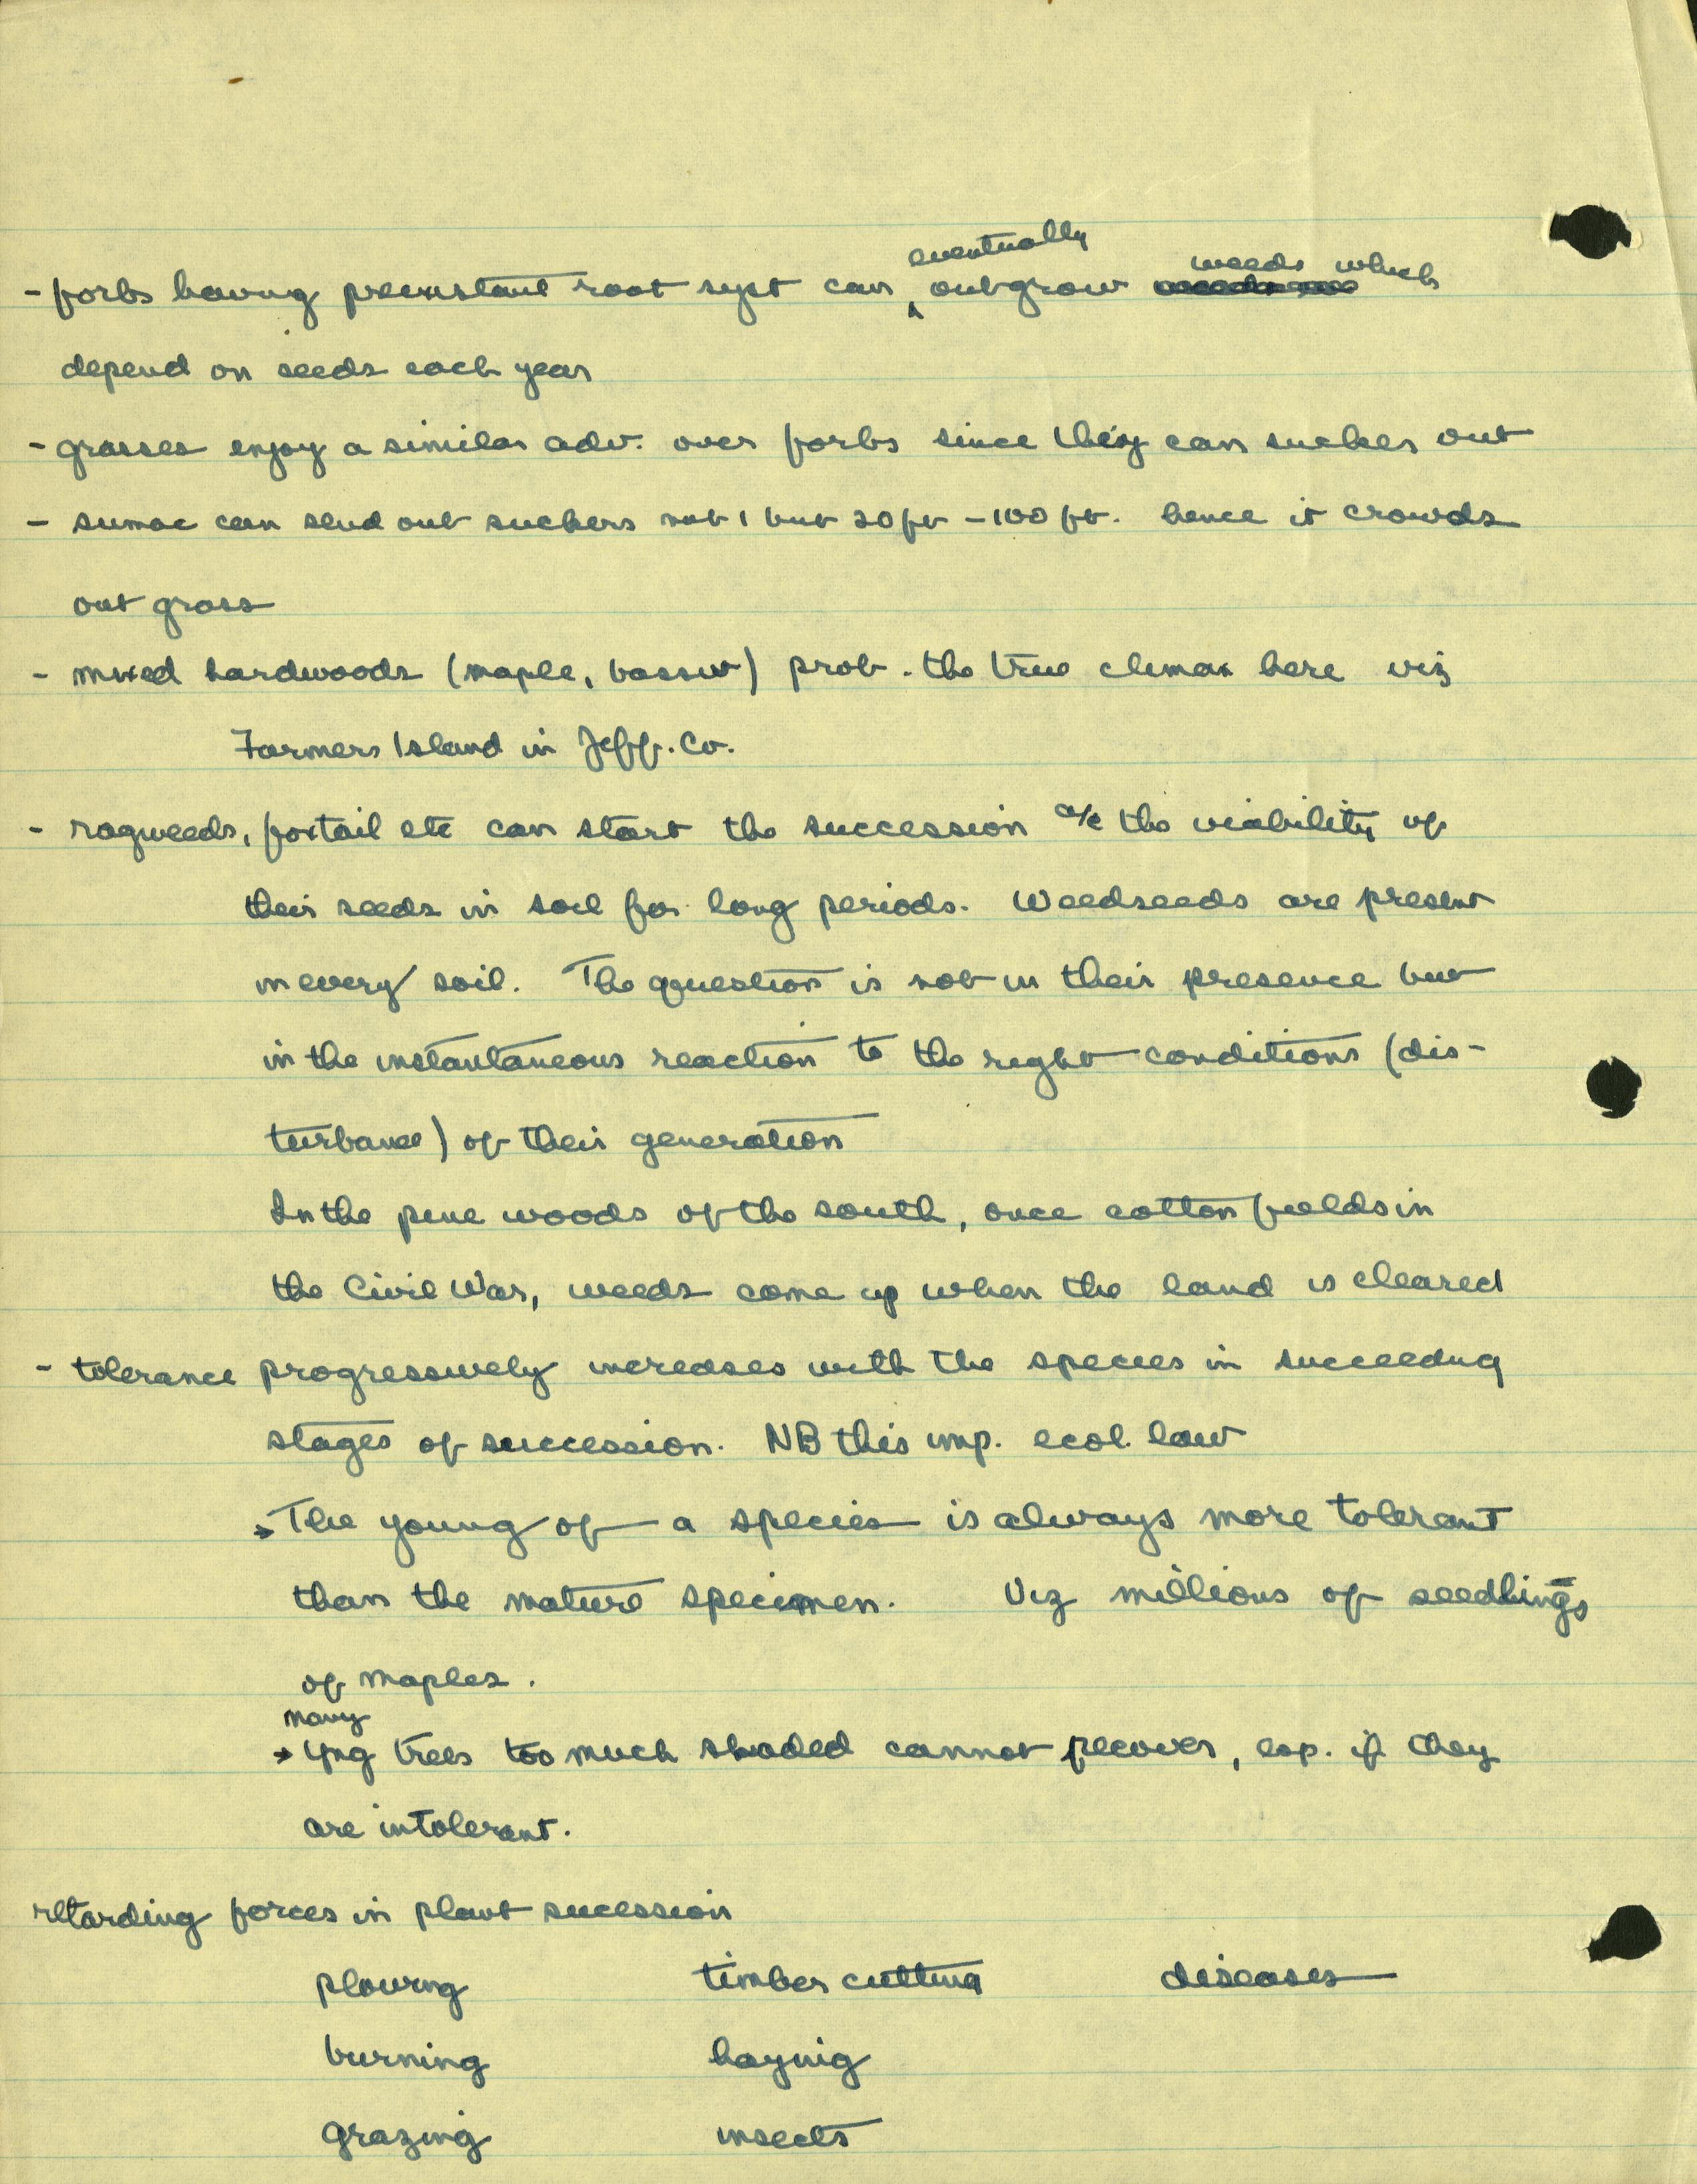 - forbs having preexistant root syst can eventually outgrow weeds which
depend on seeds each year
- grasses enjoy a similar adv. over forbs since they can sucker out
- sumac can send out suckers not 1 but 20 ft - 100 ft. hence it crowds
out grass
- mixed hardwoods (maple, bassw) prob. the true climax here viz
Farmers Island in Jeff. Co.
- ragweeds, foxtail etc can start the succession a/c the viability of
their seeds in soil for long periods. Weedseeds are present
in every soil. The question is not in their presence but
in the instantaneous reaction to the right conditions (dis-
turbance) of their generation
In the pine woods of the south, once cotton fields in
the Civil War, weeds come up when the land is cleared
- tolerance progressively increases with the species in succeeding
stages of succession. NB this imp. ecol. law
→ The young of a species is always more tolerant
than the mature specimen. Viz millions of seedlings
of maples.
→ many yng trees too much shaded cannot recover, esp. if they
are intolerant.
retarding forces in plant sucession
plowing timber cutting diseases
burning haying
grazing insects